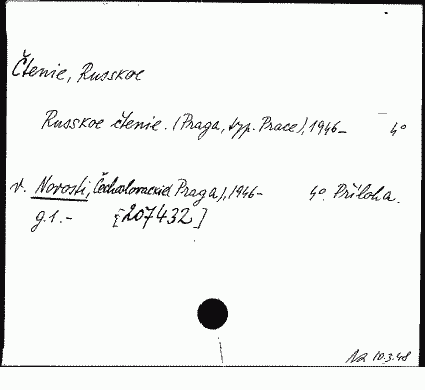 Čtenie, Russkoe
Russkoe čtenie. (Praga, typ. Prace), 1946- 4°
v. Novosti, Čechoslovackie (Praga), 1946- 4°. Příloha.
g. 1. - [207432]
10.3.48